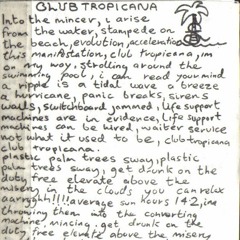 CLUB TROPICANA
Into the mincer, i arise
from the water, stampede on
the beach, evolution, acceleration
this manifestation, club tropicana, im
on my way, strolling around the
swimming pool, i can read your mind
a ripple is a tidal wave a breeze
a hurricane, panic breaks, sirens
walls, switchboard jammed, life support
machines are in evidence, life support
machines can be hired, waiter service
not what it used to be, club tropicana
club tropicana.
plastic palm trees sway, plastic
palm trees sway, get drunk on the
duty free elevate above the
misery in the clouds you can relax
aarrghh!!!!average sun hours 14.2, im
throwing them into the converting
machine, mincing. get drunk on the
duty free elevate above the misery